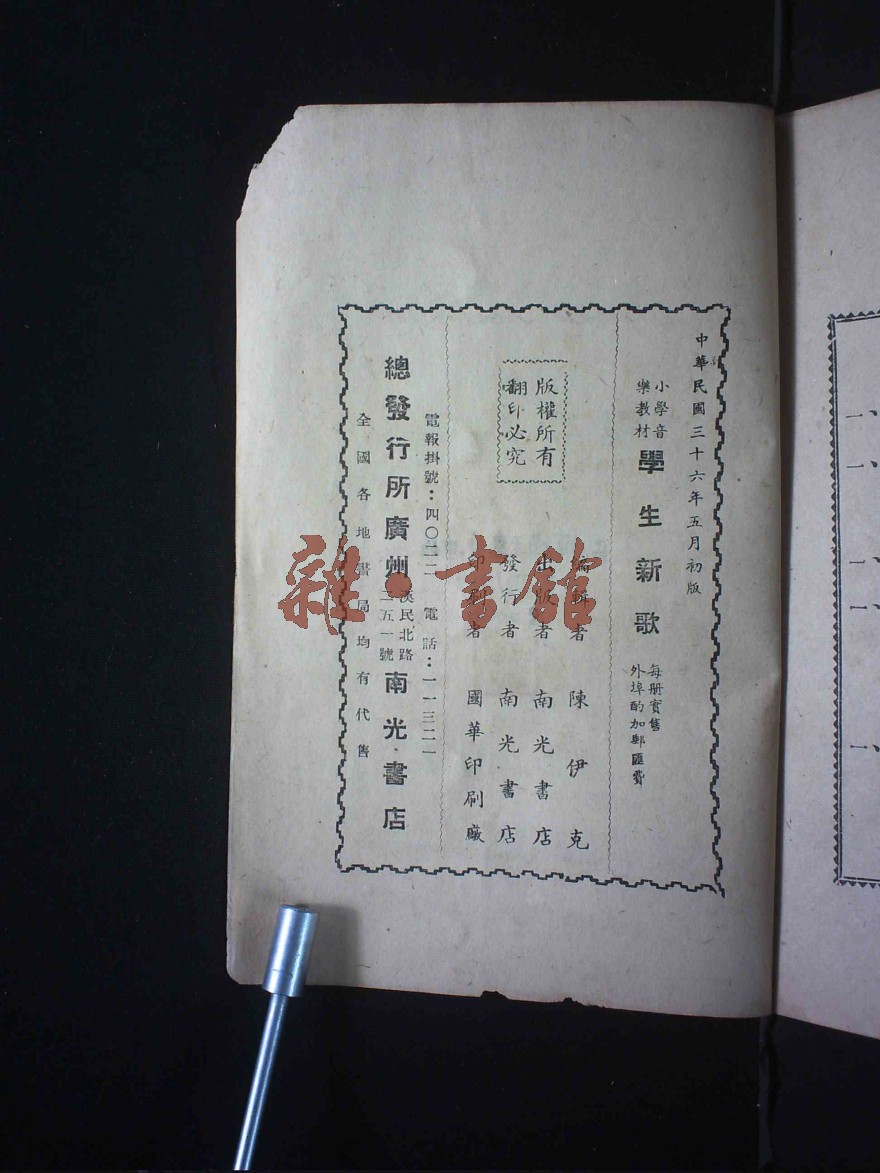 中華民國三十六年五月初版
小學音
樂教材
學生新歌
每册實售
外埠酌加郵匯費
版權所有
翻印必究
編輯者 陳伊克
出版者 南光書店
發行者 南光書店
印刷者 國華印刷廠
電報掛號：四〇二二 電話：一一三二一
總發行所廣州
漢民北路
二五一號
南光書店
全國各地書局均有代售
雜·書館
一、
一、
一、
一、
一、